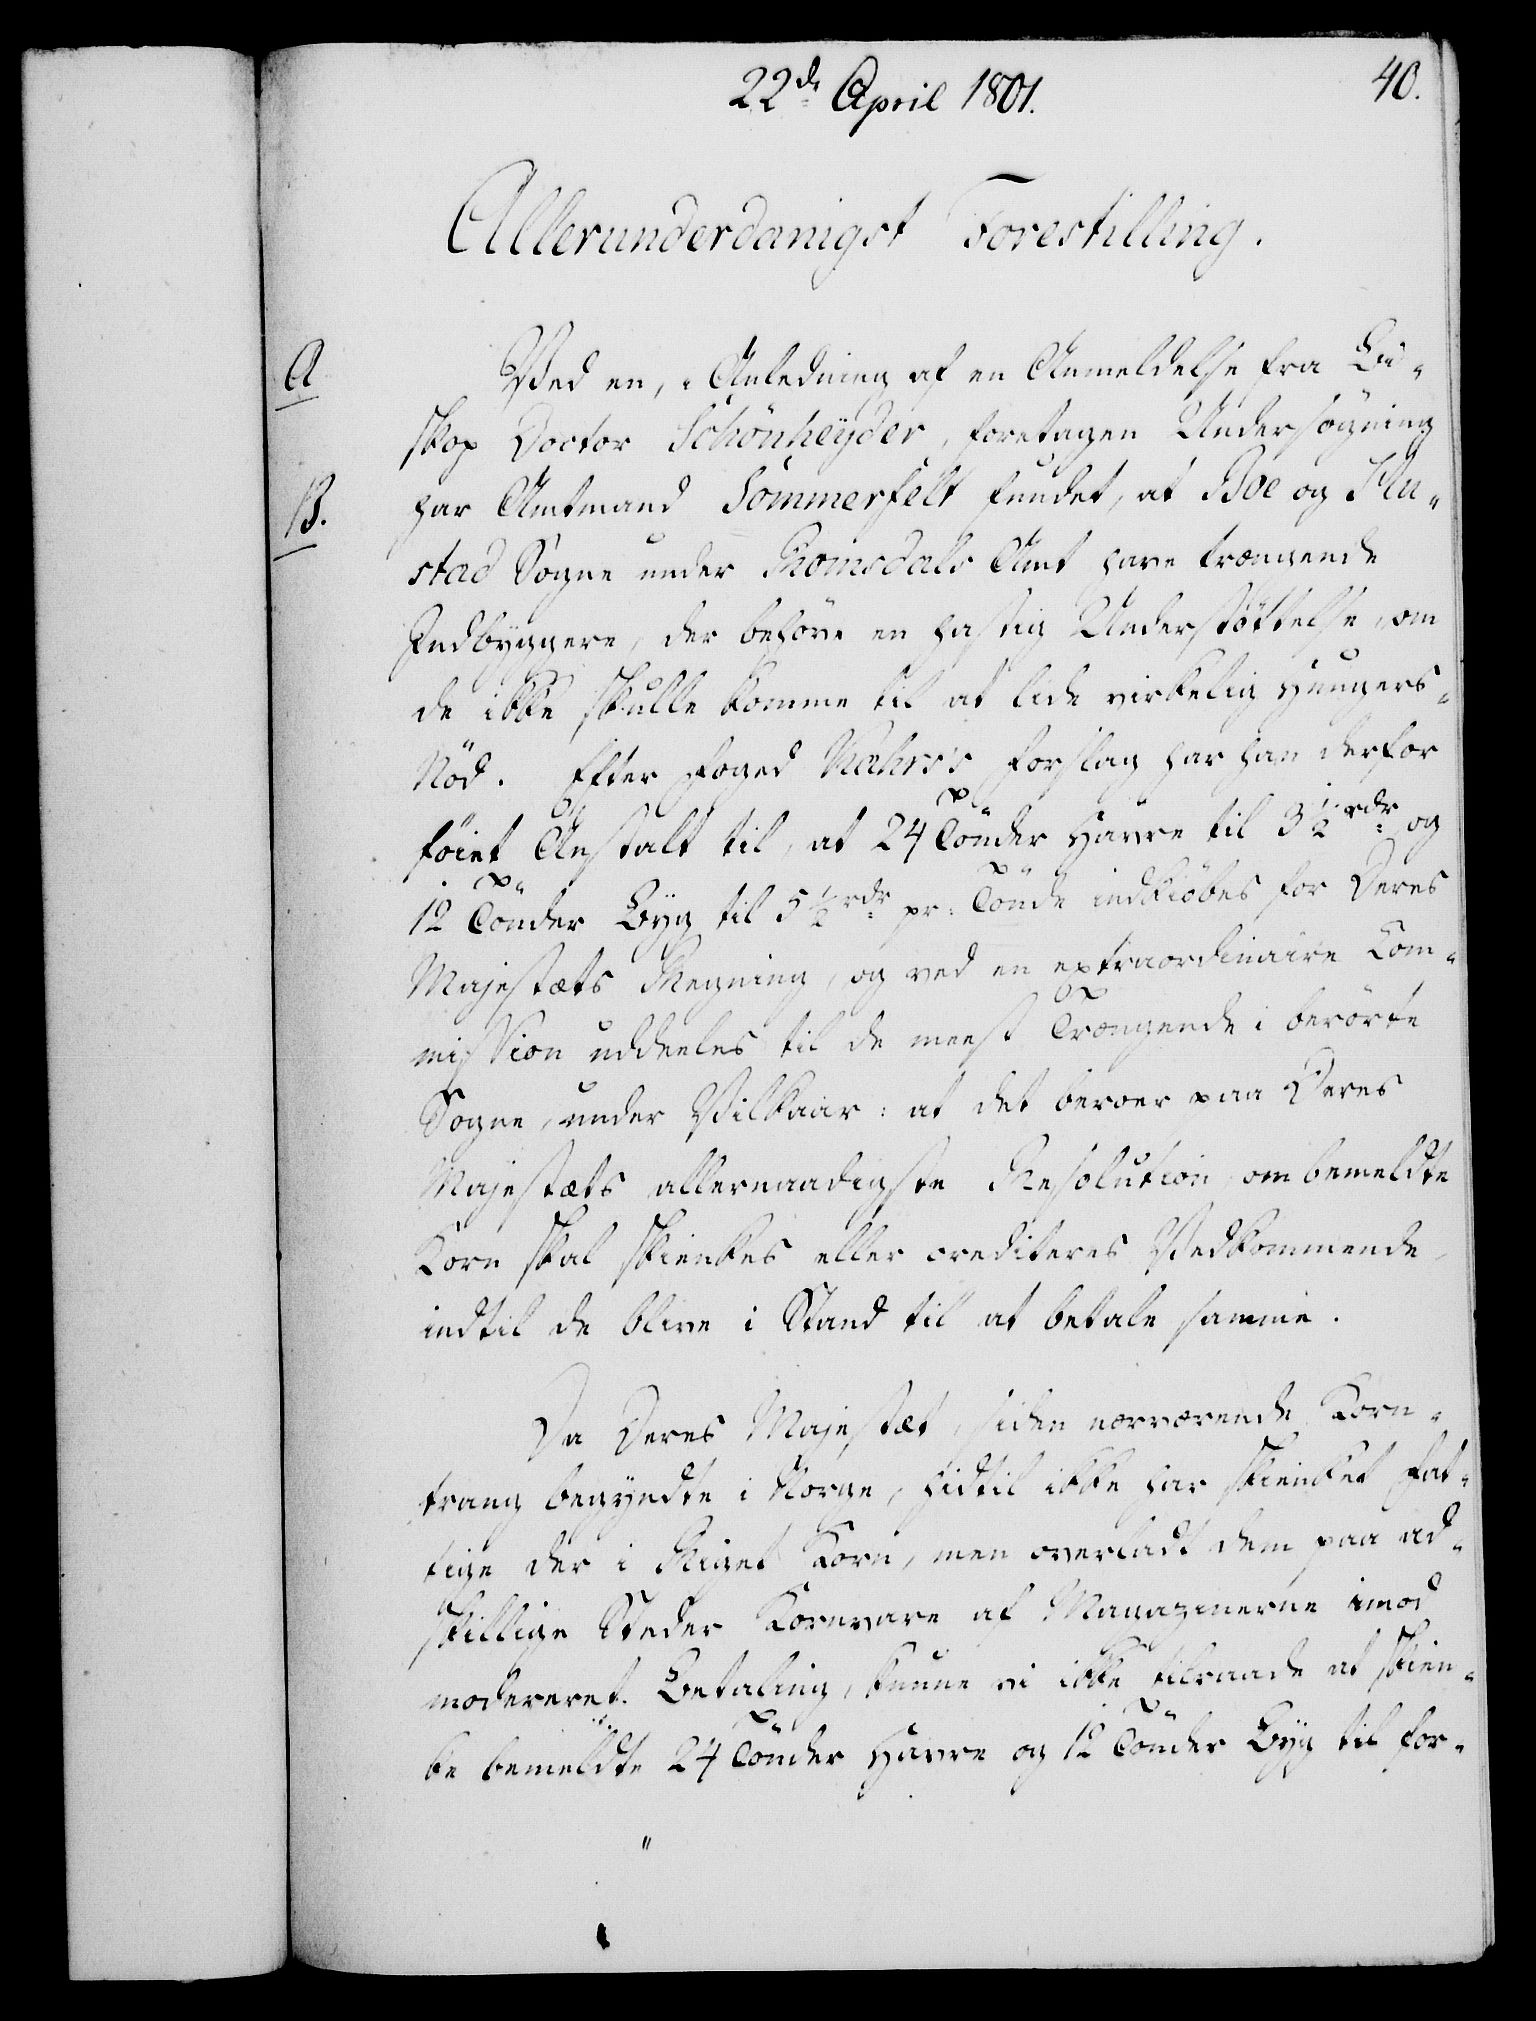 22de April 1801.
40.
Allerunderdanigst Forestilling.
A
Ved en, i Anledning af en Anmeldelse fra Bi-
skop Doctor Schönheyder, foretagen Undersøgning
B.
har Amtmand Sommerfelt fundet, at Boe og Hu-
stad Sogne under Romsdals Amt have trængende
Indbyggere, der behøve en hastig Understøttelse, om
de ikke skulle komme til at lide virkelig Hungers-
Nød. Efter Foged forslag har han derfor
føiet Anstalt til, at 24 Tönder Havre til 3½ rdr og
12 Tönder Byg til 5½ rdr pr: Tönde indkiøbes for Deres
Majestæts Regning, og ved en extraordinaire Com-
mission uddeeles til de meest Trængende i berörte
Sogne, under Vilkaar: at det beroer paa Deres
Majestæts allernaadigste Resolution, om bemeldte
Korn skal skienkes eller crediteres Vedkommende,
indtil de blive i Stand til at betale samme.
Da Deres Majestæt, siden nærværende Korn-
trang begyndte i Norge, hidtil ikke har skienket Fat-
tige der i Riget Korn, men overladt dem paa ad-
skillige Steder Kornvare af Magazinerne imod
modereret Betaling, kunne vi ikke tilraade at skien-
ke bemeldte 24 Tönder Havre og 12 Tönder Byg til for-